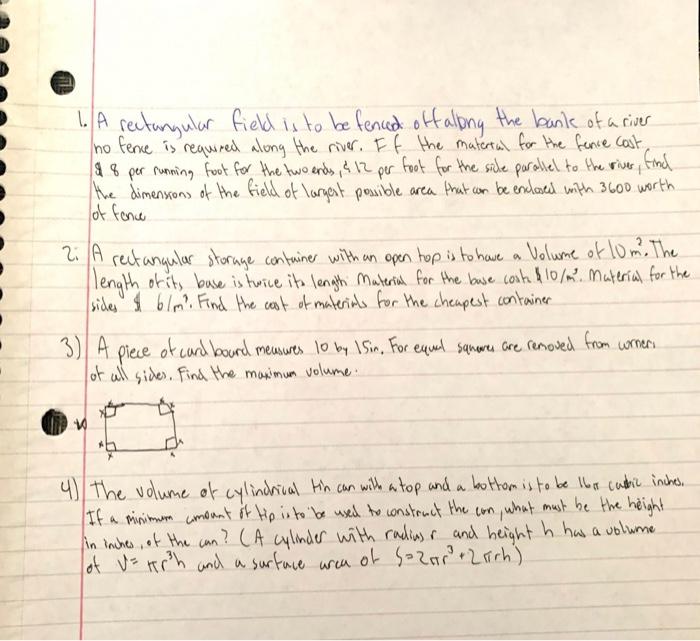 1. A rectangular field is to be fenced off along the bank of a river
no fence is required along the river. If the material for the fence cost
$ 8 per running foot for the two ends, $ 12 per foot for the side parallel to the river, find
the dimensions of the field of largest possible area that can be enclosed with 3600 worth
of fence
2: A rectangular storage container with an open top is to have a Volume of 10 m³. The
length of its base is twice its length Material for the base costs $10/m². Material for the
sides $ 6/m². Find the cost of materials for the cheapest container
3) A piece of card bourd measures 10 by 15in. For equal squares are removed from corners
of all sides. Find the maximum volume.
4) The volume of cylindrical tin can with a top and a bottom is to be 16π cubic inches.
If a minimum amount of tip is to be used to construct the can, what must be the height
in inches, of the can? (A cylinder with radius r and height h has a volume
of V= πr³h and a surface area of S=2πr³+2πrh)